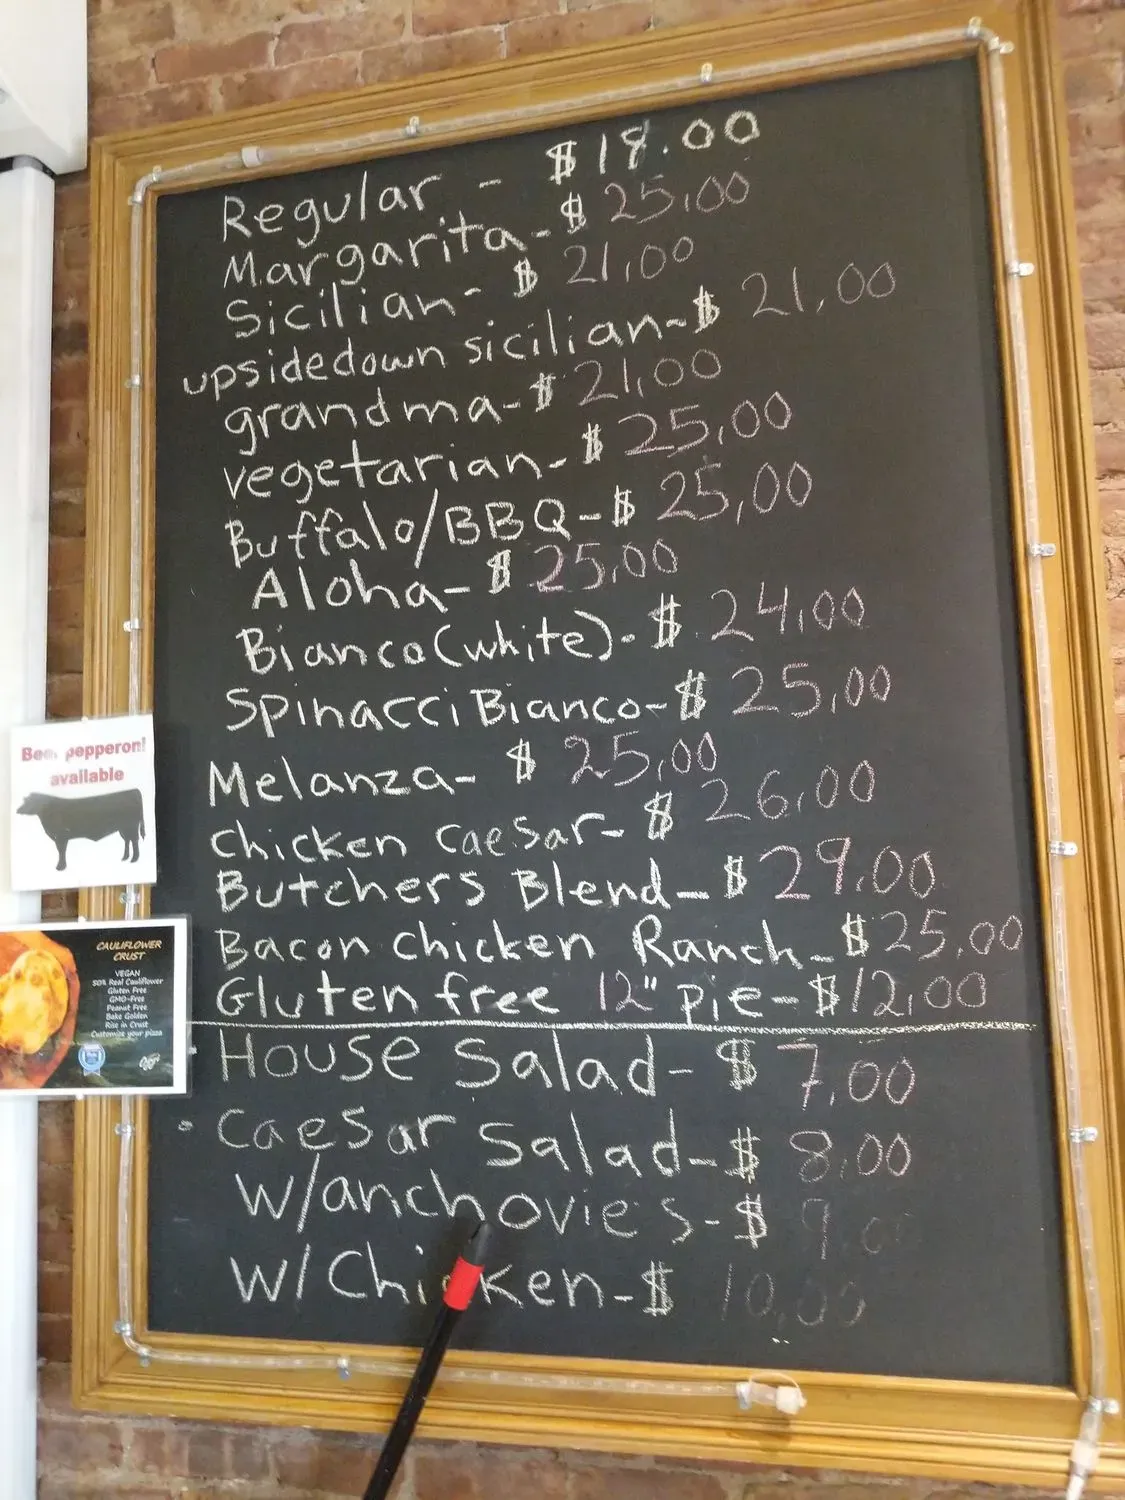 Regular - $18.00
Margarita - $25.00
Sicilian - $21.00
upsidedown sicilian - $21.00
grandma - $21.00
vegetarian - $25.00
Buffalo/BBQ - $25.00
Aloha - $25.00
Bianco (white) - $24.00
Spinacci Bianco - $25.00
Melanza - $25.00
Chicken Caesar - $26.00
Butchers Blend - $29.00
Bacon chicken Ranch - $25.00
Gluten free 12" pie - $12.00
House Salad - $7.00
Caesar Salad - $8.00
W/anchovies - $9.00
W/Chicken - $10.00
Beef pepperoni
available
CAULIFLOWER
CRUST
VEGAN
50% Real Cauliflower
Gluten Free
GMO-Free
Peanut Free
Bake Golden
Rise in Crust
Customize your pizza